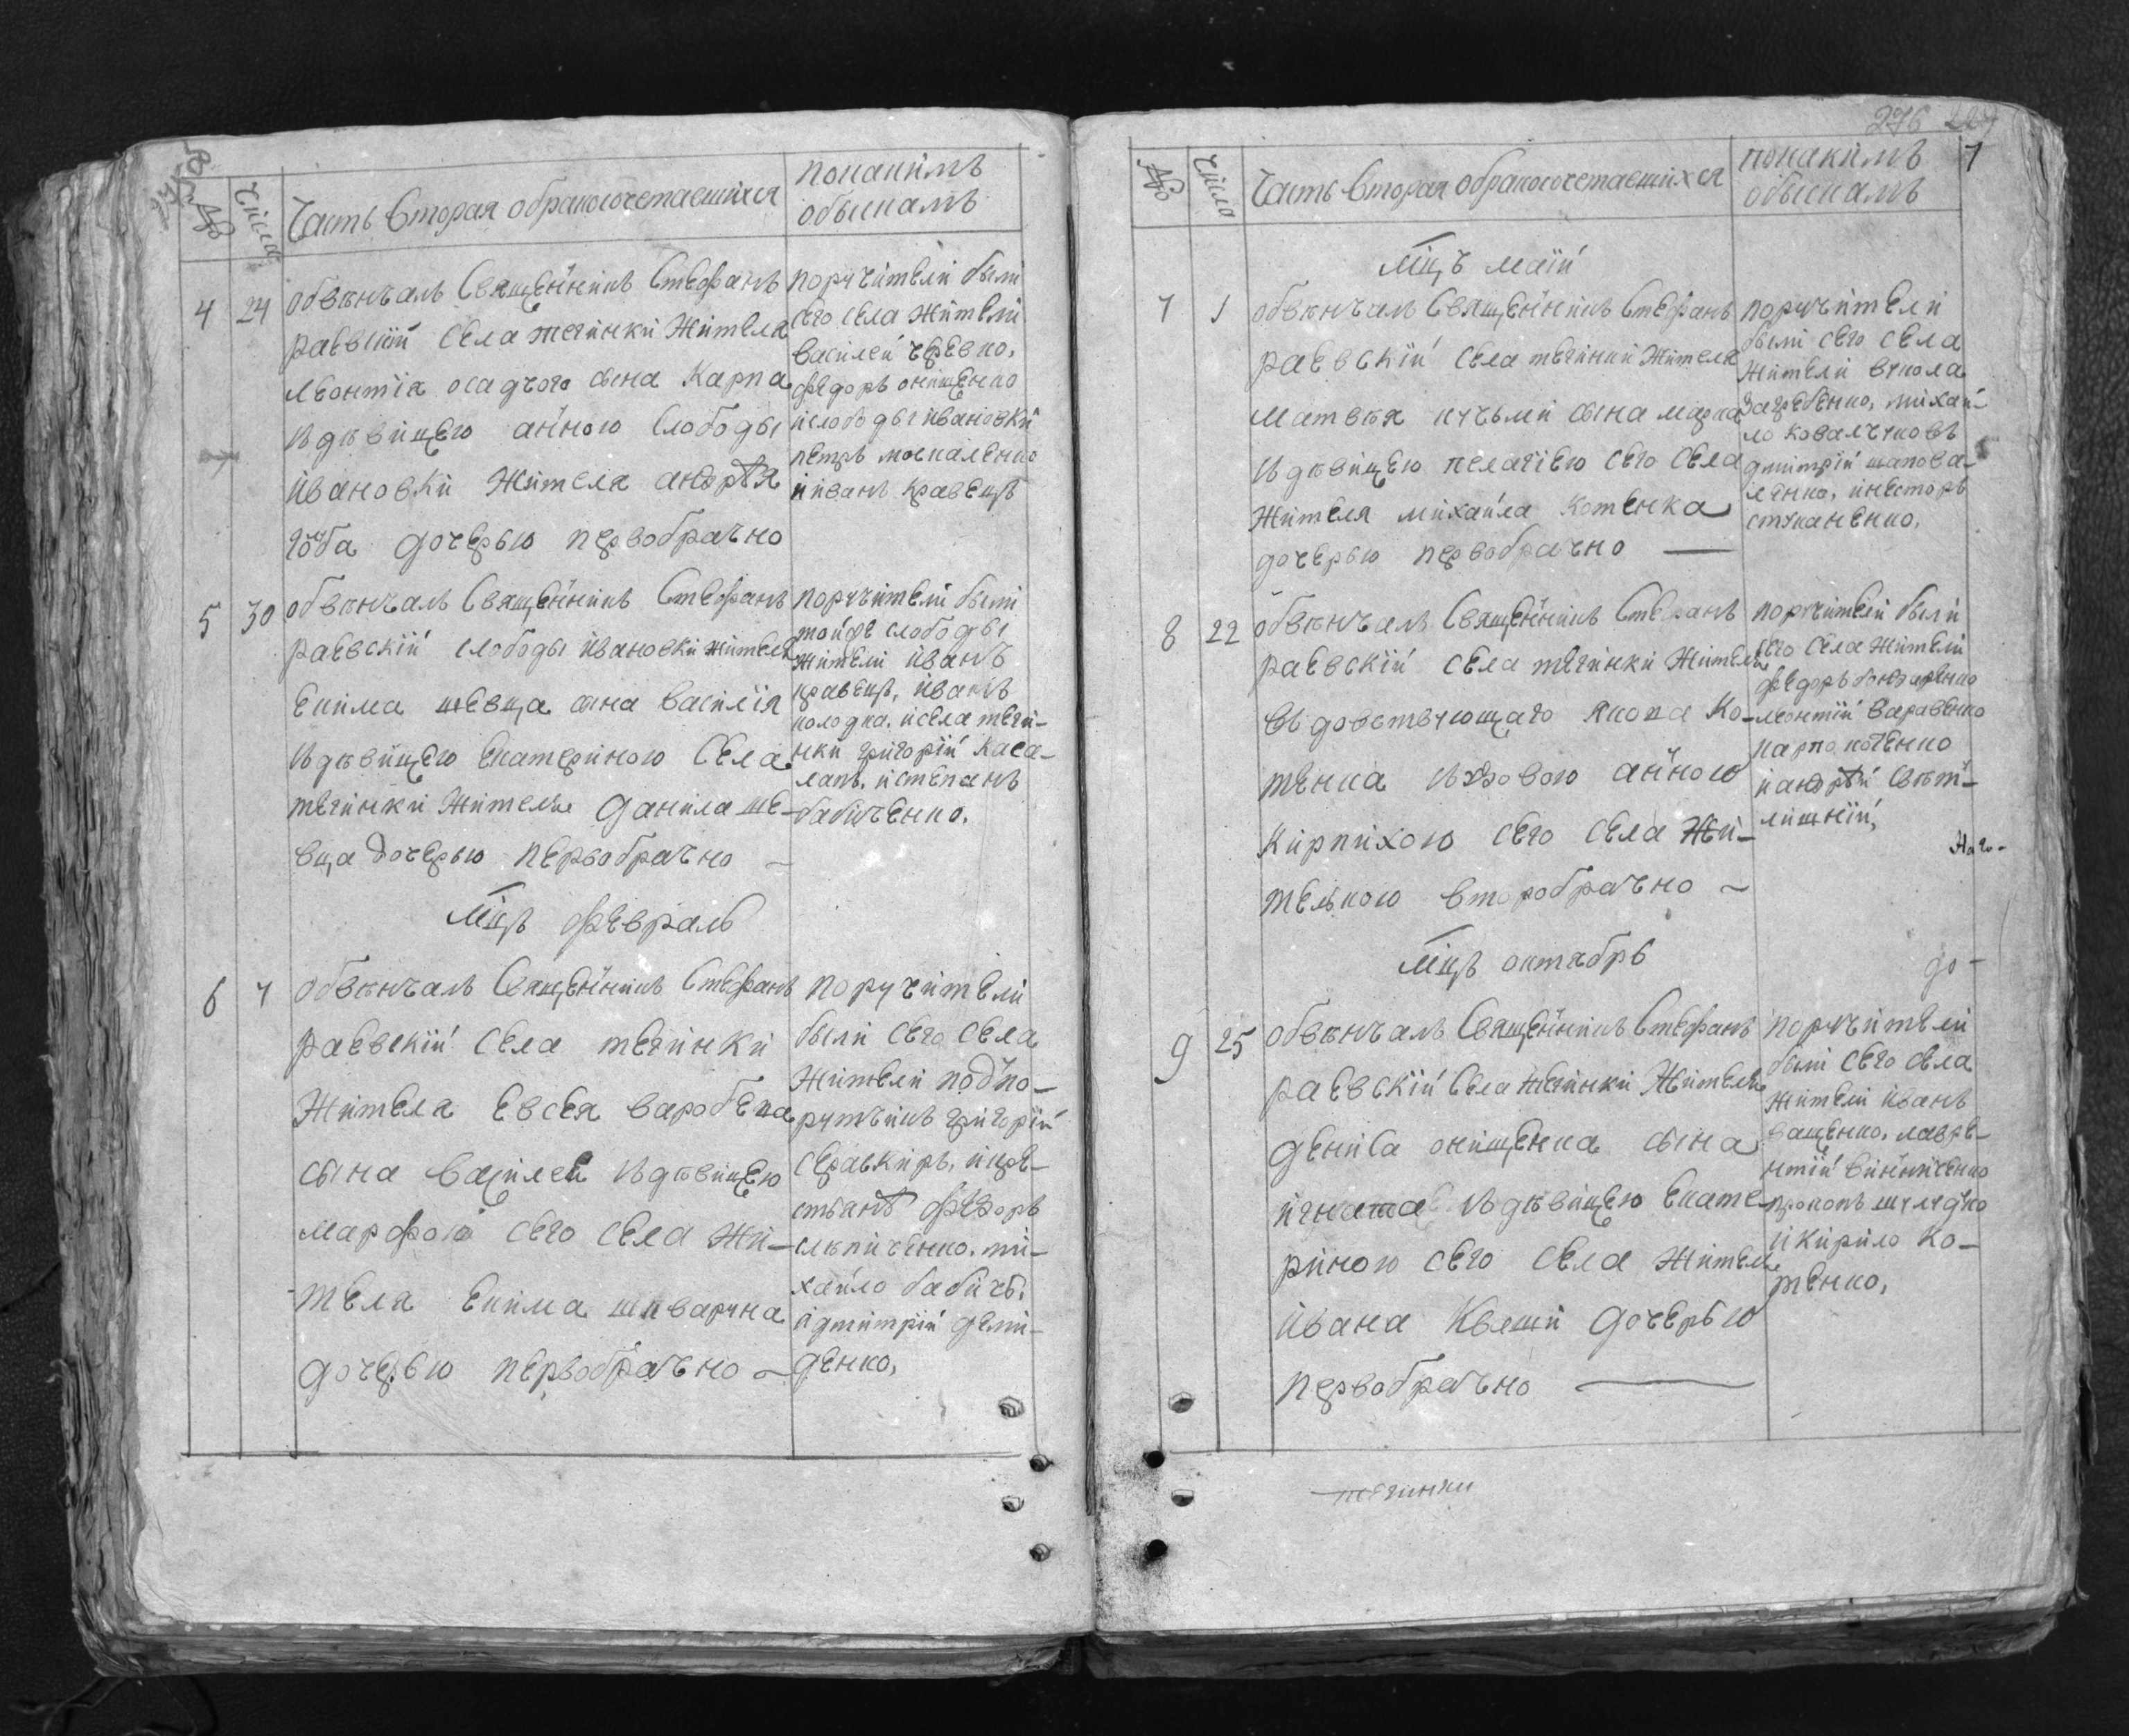 №
Числа
Часть вторая обракосочетавшихся
покакимъ
обыскамъ
4 24
обвѣнчалъ Священникъ Стефанъ
раевскій села тегинки жителя
леонтія осадчого сына Карпа
съдѣвицею анною слободы
ивановки жителя андрѣя
дочерью первобрачно
поручители были
сего села жители
василей черевко,
федоръ онищенко
ислободы ивановки
петръ москаленко
ииванъ кравецъ
5 30
обвѣнчалъ Священникъ Стефанъ
раевскій слободы ивановки жителя
екима шевца сына василія
съдѣвицею екатериною села
тегинки жителя данила ше-
вца дочерью первобрачно
поручители были
тойже слободы
жители иванъ
кравецъ, иванъ
колодка, исела теги-
нки григорій каса-
лапъ, истепанъ
бабиченко,
мцъ февраль
6 7
обвѣнчалъ Священникъ Стефанъ
раевскій села тегинки
жителя евсея варобека
сына василея съдѣвицею
марфою сего села жи-
теля екима
дочерью первобрачно
поручители
были сего села
жители подпо-
ручикъ григорій
икре-
стьянъ федоръ
слѣпиченко, ми-
хайло бабичъ,
идмитрій деми-
денко,
276
№
Числа
Часть вторая обракосочетавшихся
покакимъ
обыскамъ
мцъ маій
7 1
обвѣнчалъ Священникъ Стефанъ
раевскій села тегинки жителя
матвѣя кучьми сына марка
съдѣвицею пелагіею сего села
жителя михайла котенка
дочерью первобрачно
поручители
были сего села
жители вукола
загребенко, михай-
ло ковалчуковъ
дмитрій шапова-
ленко, инесторъ
стуканенко,
8 22
обвѣнчалъ Священникъ Стефанъ
раевскій села тегинки жителя
вдовствующаго якова ко-
тенка съвдовою анною
кирпихою сего села жи-
телькою второбрачно
поручители были
сего села жители
федоръ бондаренко
леонтій варавенко
карпо котенко
иандрѣй свѣт-
лишній,
мцъ октябрь
до-
9 25
обвѣнчалъ Священникъ Стефанъ
раевскій села тегинки жителя
дениса онищенка сына
игната съдѣвицею екате-
риною сего села жителя
ивана кваши дочерью
первобрачно
поручители
были сего села
жители иванъ
ващенко, лавре-
нтій винниченко
прокопъ шулидко
икирило ко-
тенко,
тегинки